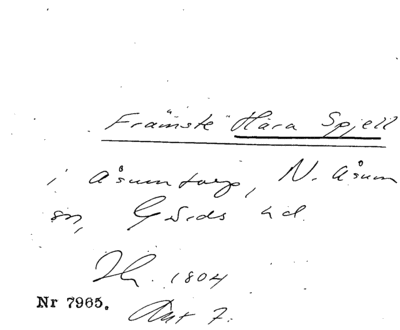 Främste Hära Spjell
i Åsumtorp, N. Åsum
sn, Gärds hd.
1804
Nr 7965.
Akt 7.